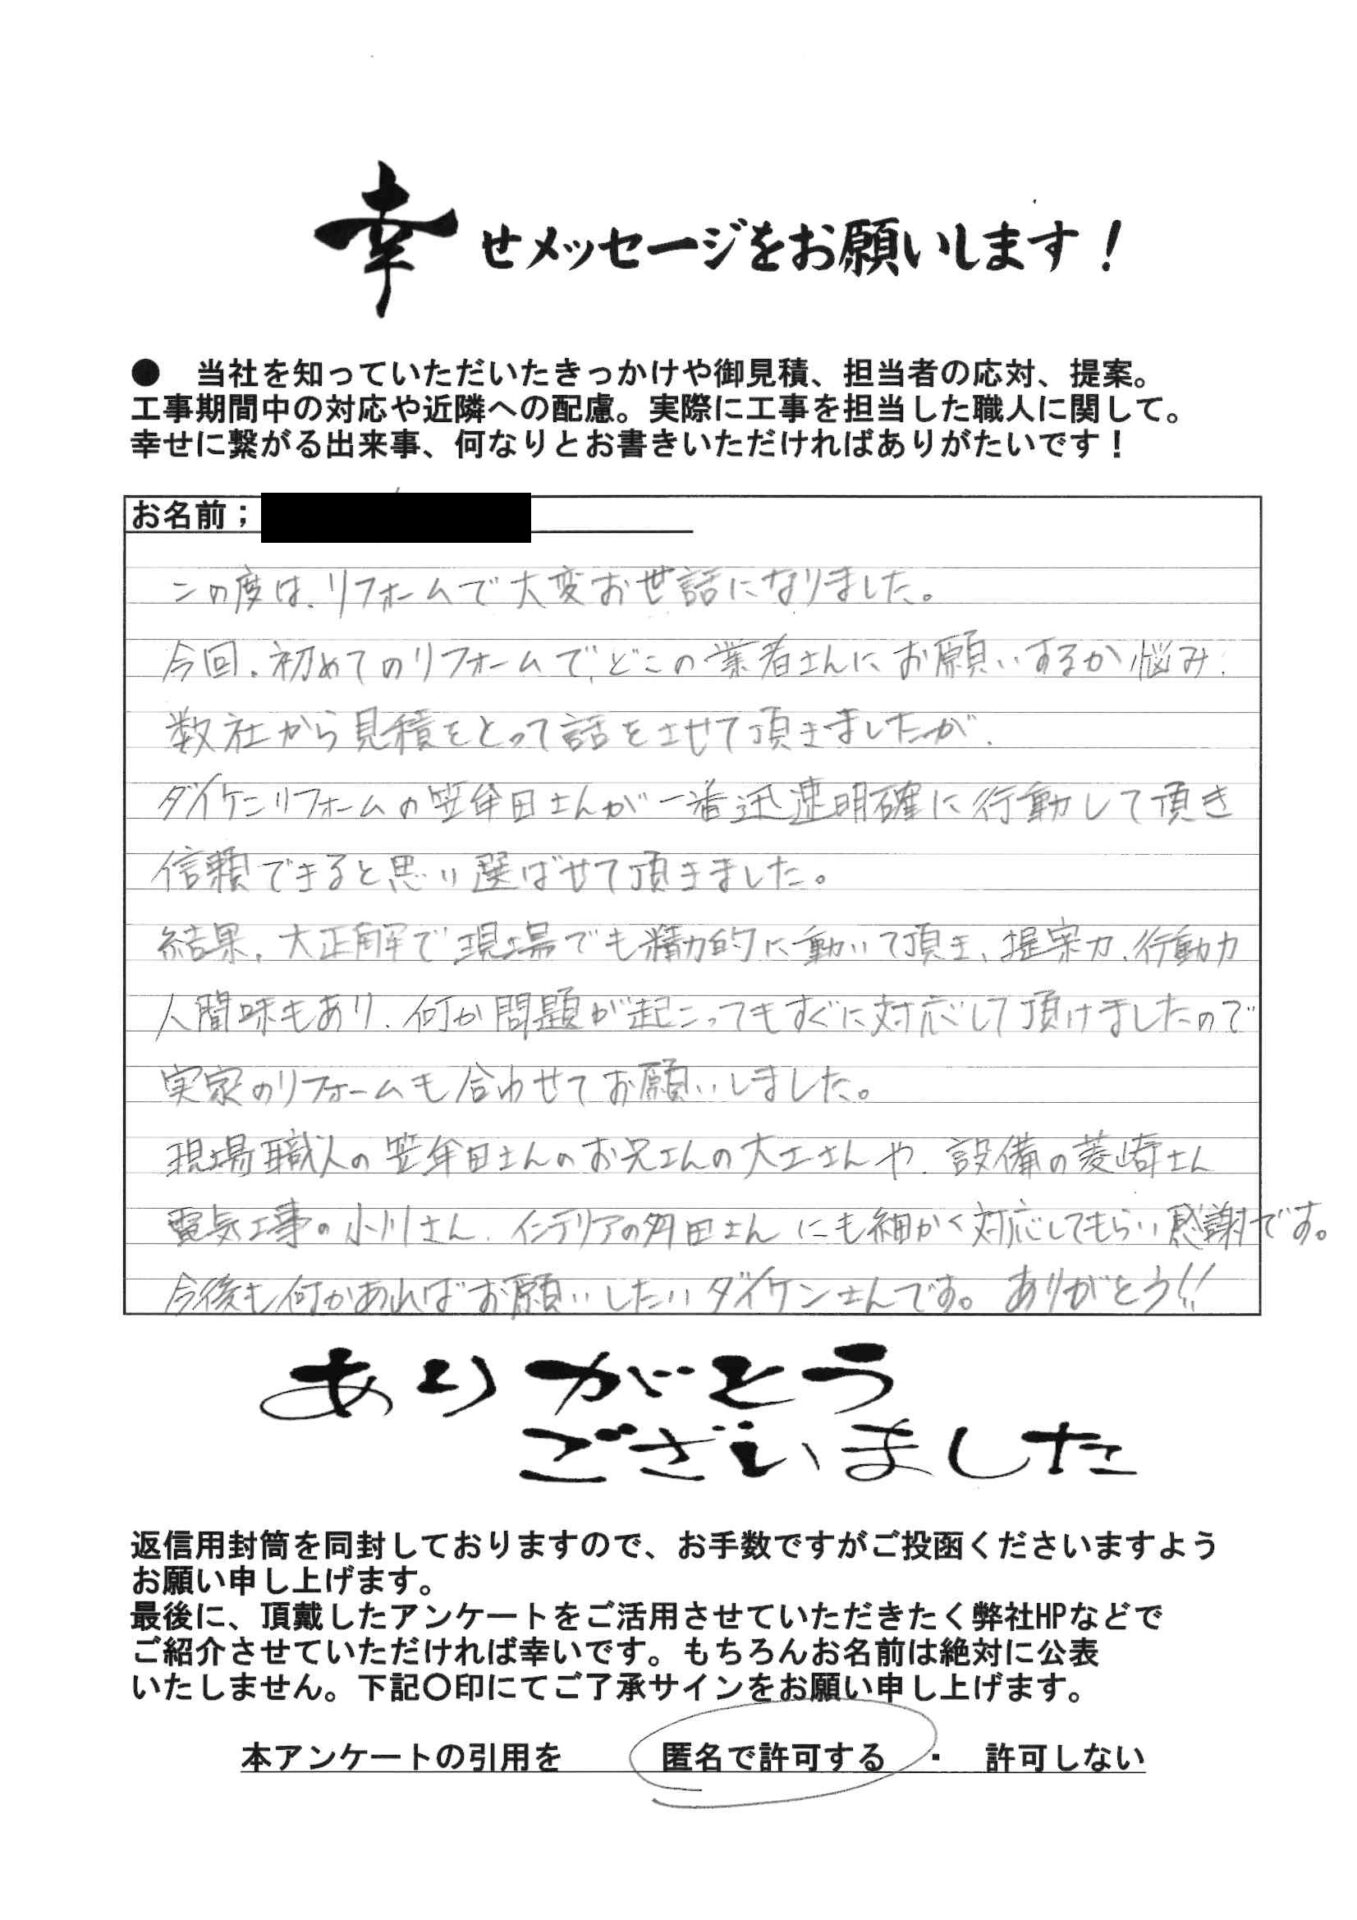 幸せメッセージをお願いします！
● 当社を知っていただいたきっかけや御見積、担当者の応対、提案。
工事期間中の対応や近隣への配慮。実際に工事を担当した職人に関して。
幸せに繋がる出来事、何なりとお書きいただければありがたいです！
お名前；
この度は、リフォームで大変お世話になりました。
今回、初めてのリフォームで、どこの業者さんにお願いするか悩み、
数社から見積をとって話をさせて頂きましたが、
ダイケンリフォームの笠牟田さんが一番迅速明確に行動して頂き
信頼できると思い選ばせて頂きました。
結果、大正解で現場でも精力的に動いて頂き、提案力、行動力
人間味もあり、何か問題が起こってもすぐに対応して頂けましたので
実家のリフォームも合わせてお願いしました。
現場職人の笠牟田さんのお兄さんの大工さんや、設備の菱崎さん
電気工事の小川さん、インテリアの多田さんにも細かく対応してもらい感謝です。
今後も何かあればお願いしたいダイケンさんです。ありがとう!!
ありがとう
ございました
返信用封筒を同封しておりますので、お手数ですがご投函くださいますよう
お願い申し上げます。
最後に、頂戴したアンケートをご活用させていただきたく弊社HPなどで
ご紹介させていただければ幸いです。もちろんお名前は絶対に公表
いたしません。下記〇印にてご了承サインをお願い申し上げます。
本アンケートの引用を 匿名で許可する ・ 許可しない